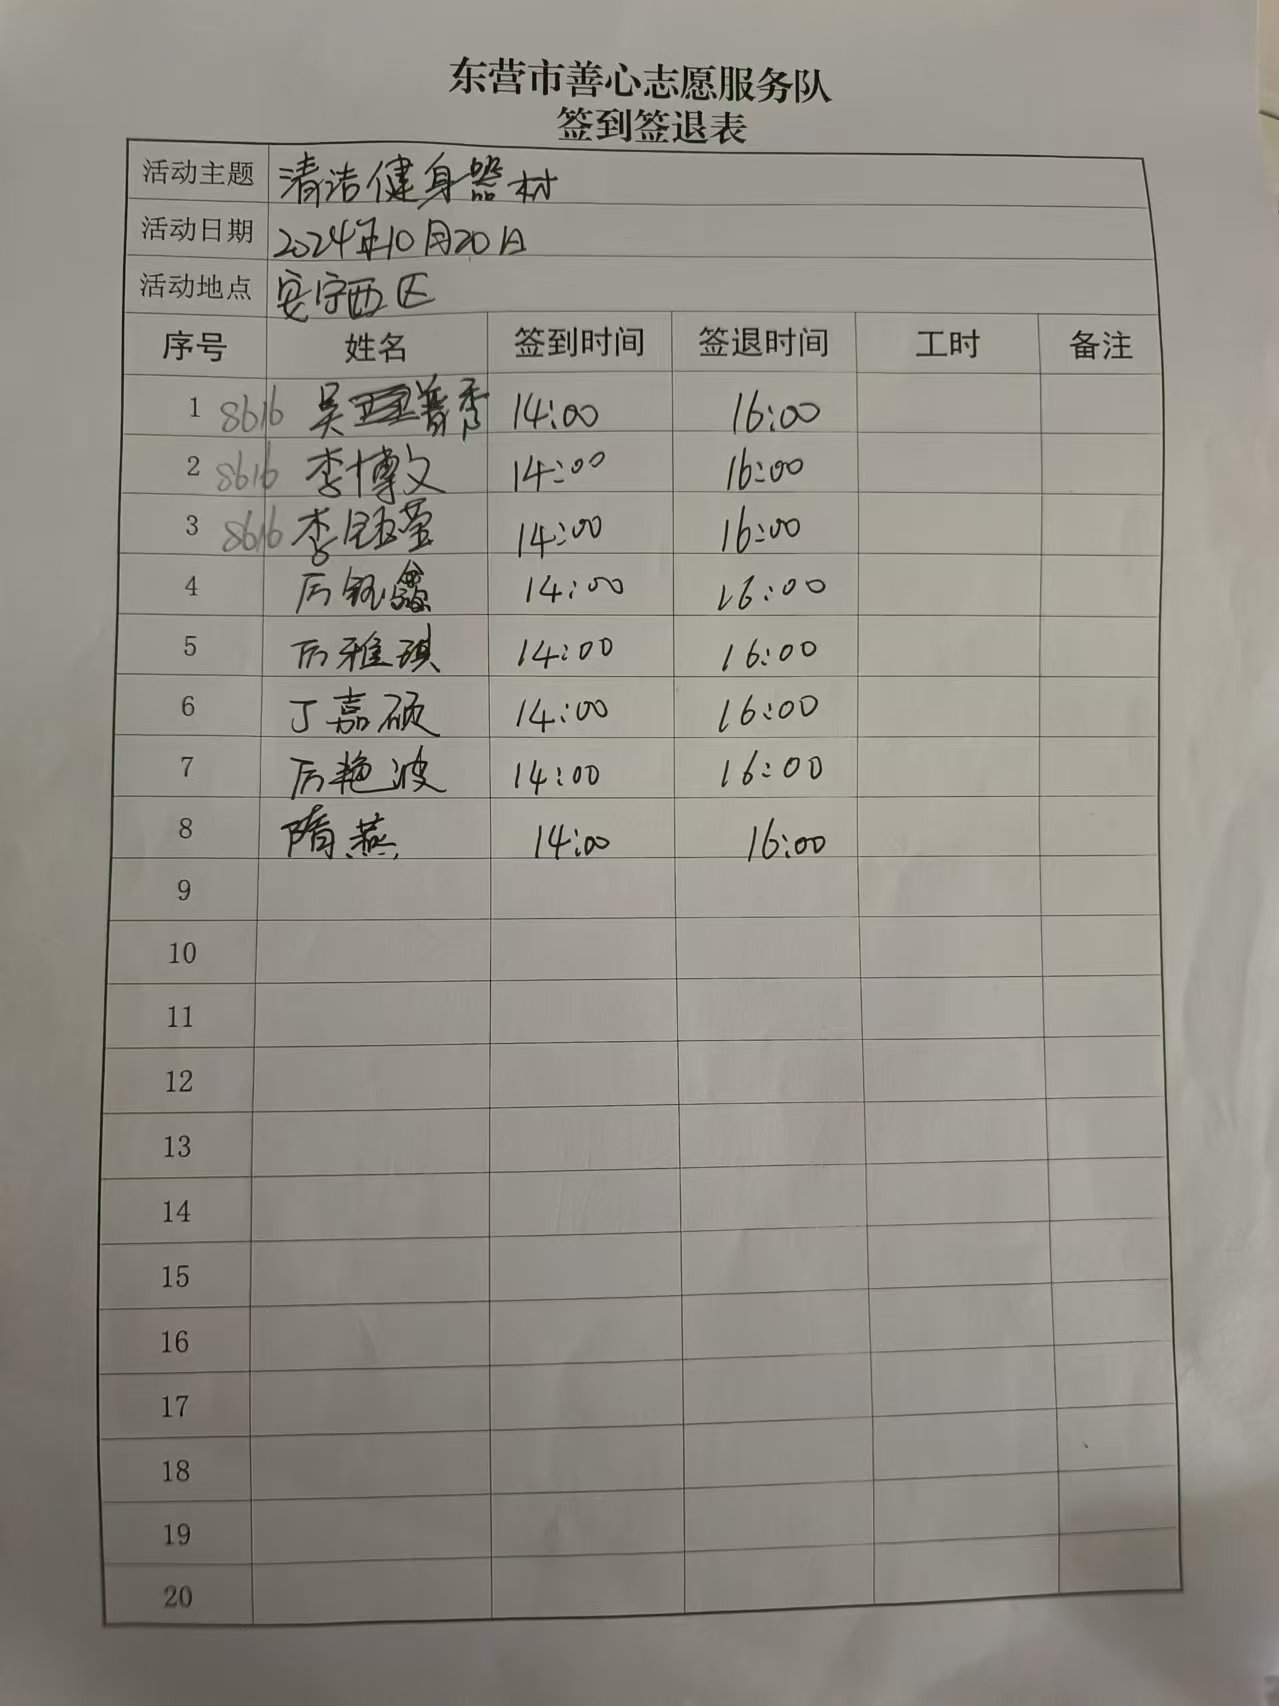 东营市善心志愿服务队
签到签退表
活动主题 清洁健身器材
活动日期 2024年10月20日
活动地点 安宁西区
序号 姓名 签到时间 签退时间 工时 备注
1 8616 吴普秀 14:00 16:00
2 8616 李博文 14:00 16:00
3 8616 李钰莹 14:00 16:00
4 厉钰鑫 14:00 16:00
5 厉雅琪 14:00 16:00
6 丁嘉硕 14:00 16:00
7 厉艳波 14:00 16:00
8 隋燕 14:00 16:00
9
10
11
12
13
14
15
16
17
18
19
20